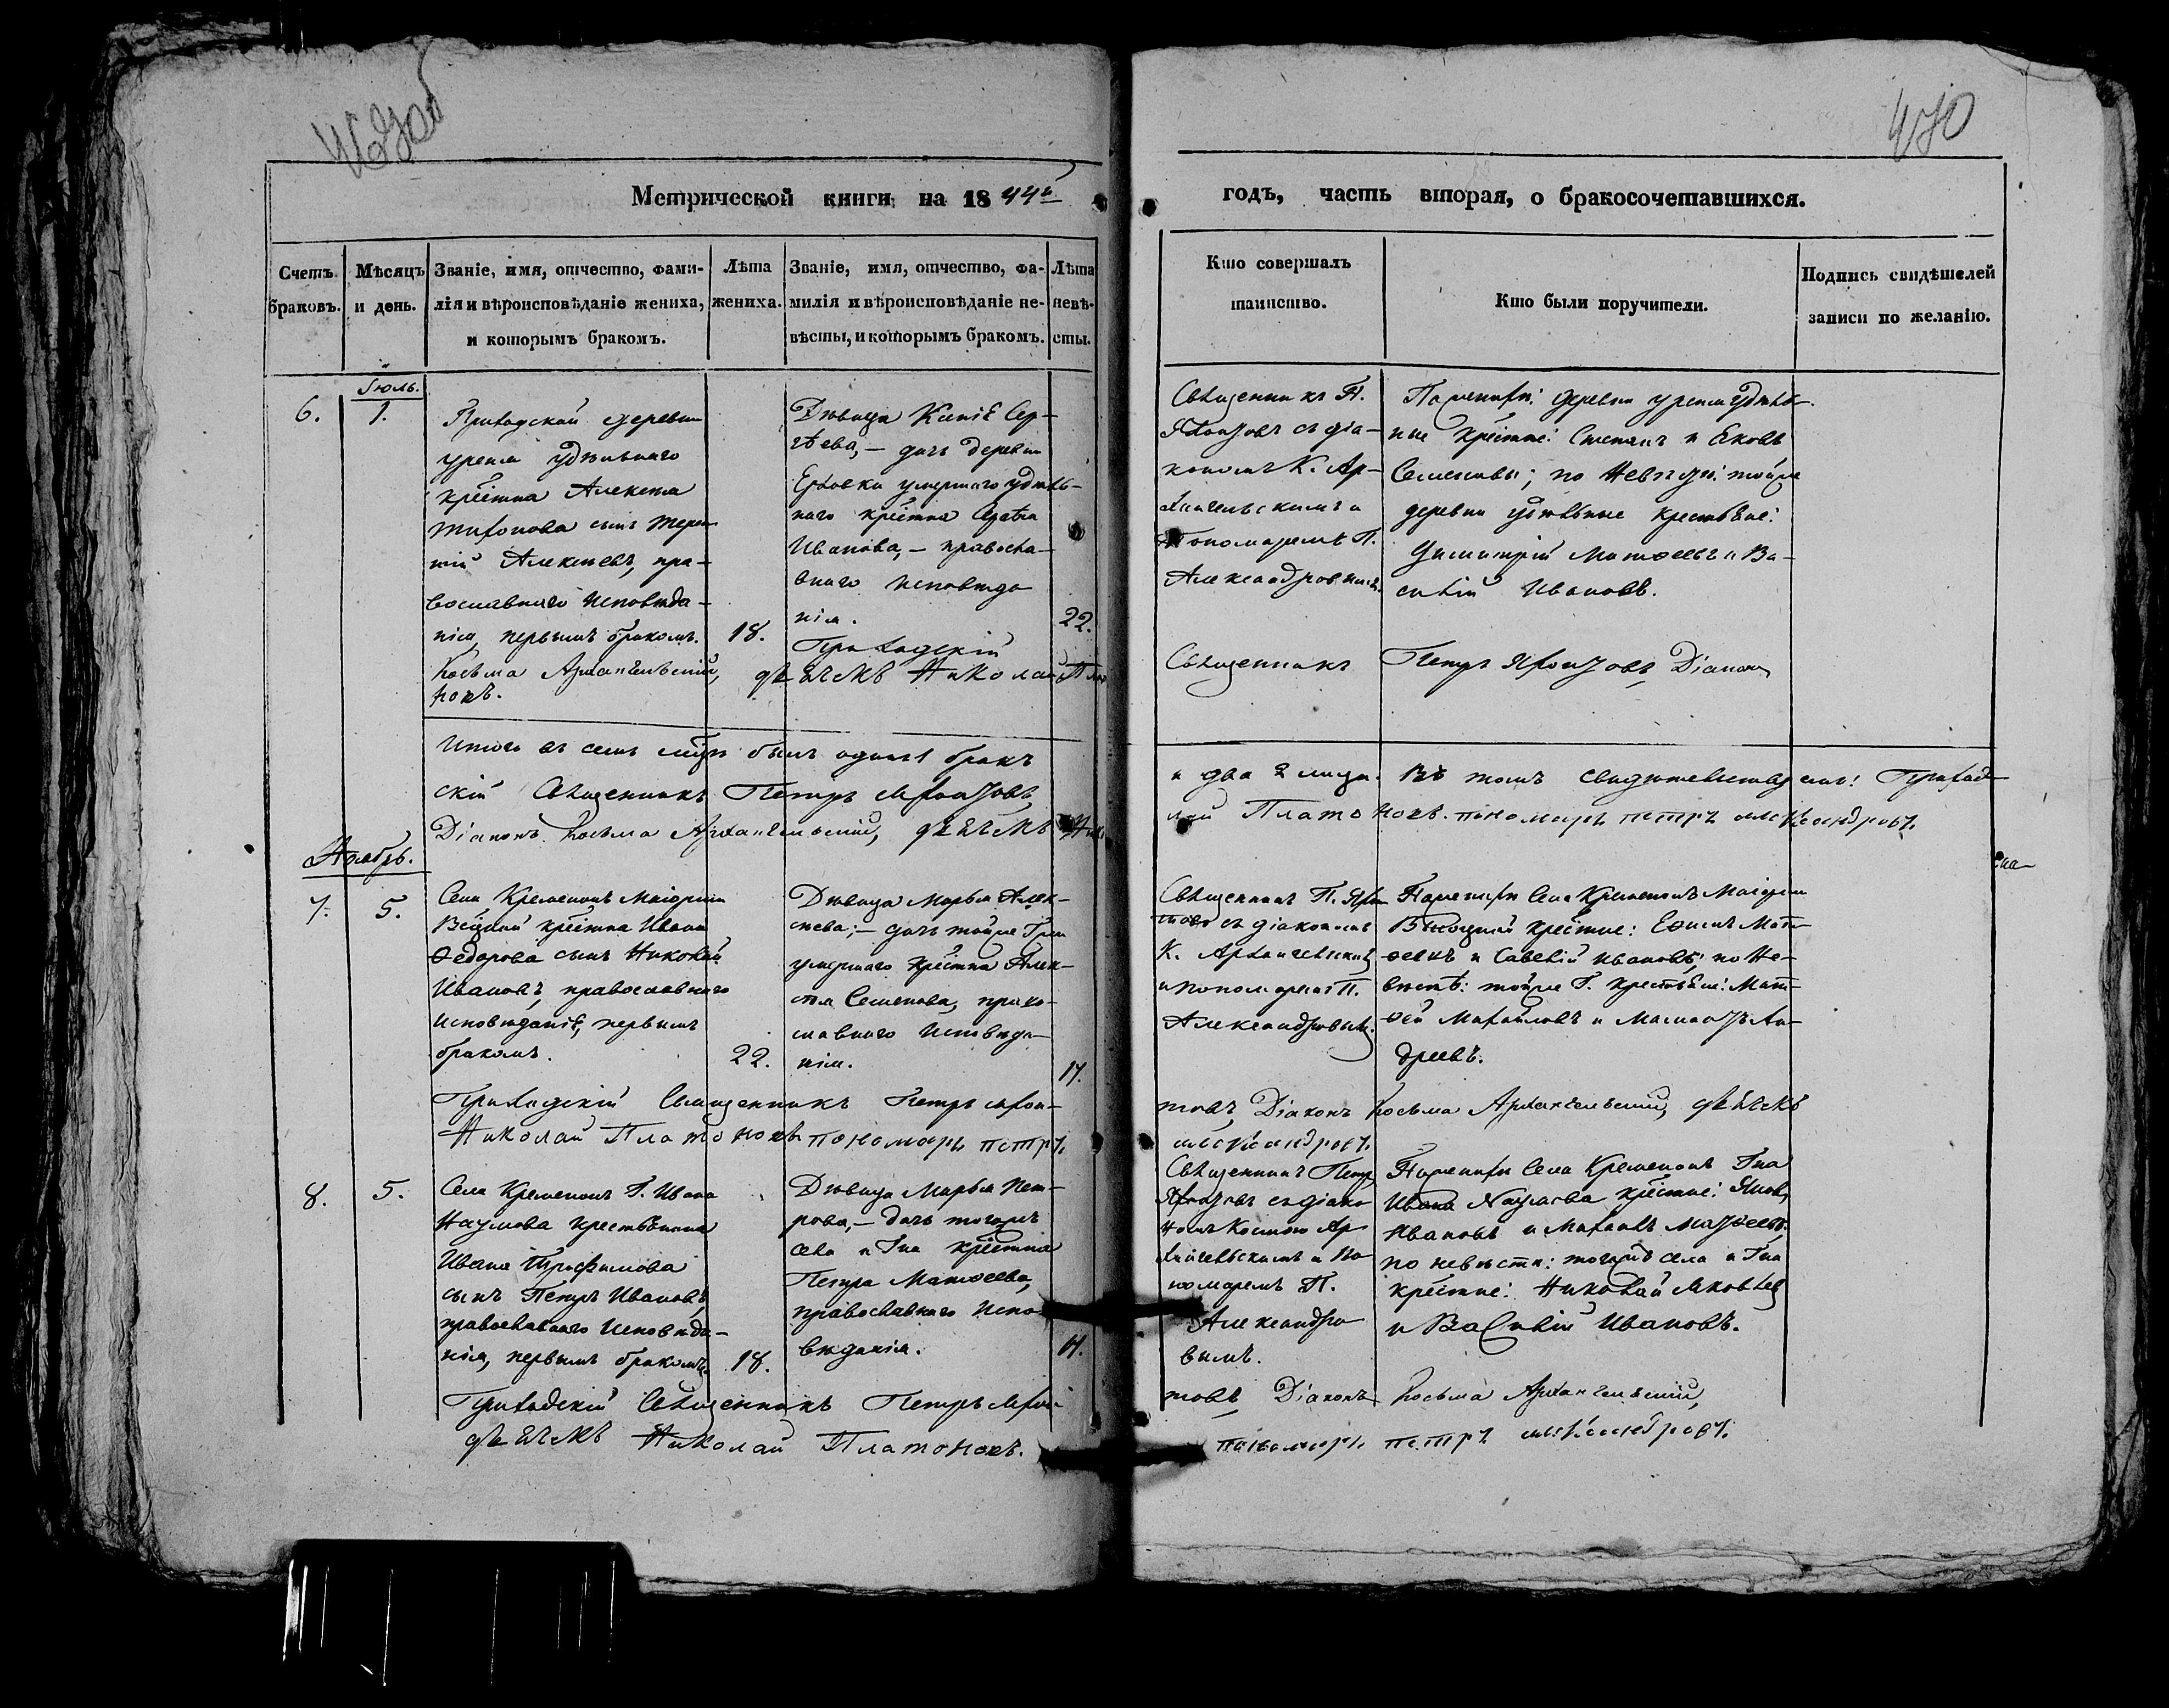 470
Метрической книги на 1844й
годъ, часть вторая, о бракосочетавшихся.
Счетъ браковъ.
Мѣсяцъ и день.
Званіе, имя, отчество, фами-
лія и вѣроисповѣданіе жениха,
и которымъ бракомъ.
Лѣта
жениха.
Званіе, имя, отчество, фа-
милія и вѣроисповѣданіе не-
вѣсты, и которымъ бракомъ.
Лѣта
невѣ-
сты.
Кто совершалъ
таинство.
Кто были поручители.
Подпись свидѣтелей
записи по желанію.
Іюль.
6.
1.
Приходской деревни
удѣльнаго
крестна Алексѣя
Тихонова сынъ Терен-
тій Алексѣевъ, пра-
вославнаго исповѣда-
нія, первымъ бракомъ.
18.
Дѣвица Ксенія Сер-
гѣева, — дочь деревни
умершаго удѣль-
наго крестна Сергѣя
Иванова, — правосла-
внаго исповѣда
нія.
22.
Священникъ П.
съ діа-
кономъ К. Ар-
хангельскимъ и
Пономаремъ П.
Александровымъ.
деревни удѣль-
ные крестне: Степанъ и Яковъ
Семеновы; по Невѣстѣ: тойже
деревни удѣльные крестьяне:
Димитрій Матѳеевъ и Ва-
силій Ивановъ.
Приходскій
Священникъ Петръ Діаконъ
Косьма Архангельскій, дьячекъ Николай Плато
новъ.
Итого въ семъ мцѣ былъ одинъ 1 бракъ
и два 2 лица. Въ томъ свидѣтельствуемъ: Приход-
скій Священникъ Петръ
Діаконъ Косьма Архангельскій, дьячекъ Нико
лай Платоновъ. пономарь петръ александровъ.
Ноябрь.
7.
5.
Села Кременокъ Маіорши
крестна Ивана
Ѳедорова сынъ Николай
Ивановъ, православнаго
исповѣданія, первымъ
бракомъ.
22.
Дѣвица Марья Алек-
сѣева; — дочь тойже Гжи
умершаго крестна Алек-
сѣя Семенова, право-
славнаго исповѣда-
нія.
17.
Священникъ П.
съ діакономъ
К. Архангельскимъ
и пономаремъ П.
Александровымъ.
Села Кременокъ Маіорши
крестне: Ефимъ Мат-
ѳеевъ и Савелій Ивановъ; по Не-
вѣстѣ: тойже Г. крестьяне: Мат-
ѳей Михайловъ и Ан-
дреевъ.
Приходскій Священникъ Петръ
Діаконъ Косьма Архангельскій, дьячекъ
Николай Платоновъ пономарь петръ
александровъ.
8.
5.
Села Кременокъ Г. Ивана
Наумова крестьянина
Ивана Трофимова
сынъ Петръ Ивановъ,
православнаго исповѣда-
нія, первымъ бракомъ.
18.
Дѣвица Марья Пет-
рова, — дочь тогоже
села и Гна крестна
Петра Матѳеева,
православнаго испо-
вѣданія.
Священникъ Петръ
съ діако
номъ Космою Ар-
хангельскимъ и по-
номаремъ П.
Александро-
вымъ.
Села Кременокъ Гна
Ивана Наумова крестне: Яковъ
Ивановъ и Михаилъ
по невѣстѣ: тогожъ села и Гна
крестне: Николай Яковлев
и Василій Ивановъ.
Приходскій Священникъ Петръ
Діаконъ Косьма Архангельскій,
дьячекъ Николай Платоновъ.
пономарь петръ александровъ.